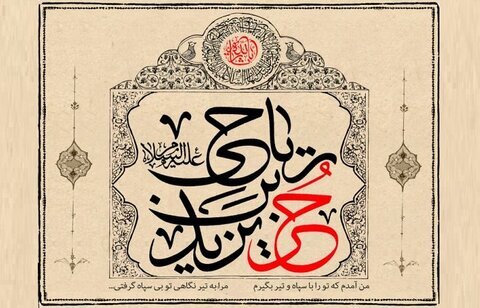 حر بن یزید
ریاحی
علیه السلام
من آمدم که تو را با سپاه و تیر بگیرم
مرا به تیر نگاهی تو بی سپاه گرفتی...